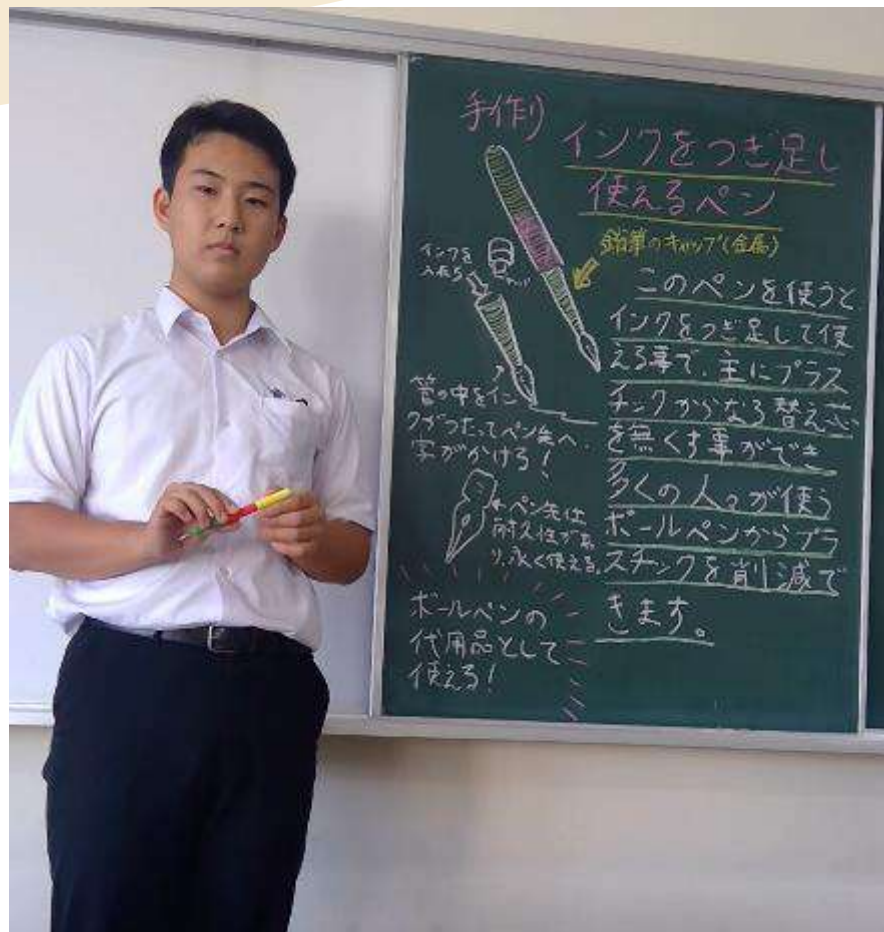 手作り
インクをつぎ足し
使えるペン
鉛筆のキャップ(金属)
インクを
入れる
キャップ
管の中をイン
クがつたってペン先へ。
字がかける!
ペン先は
耐久性があ
り、永く使える。
ボールペンの
代用品として
使える!
このペンを使うと
インクをつぎ足して使
える事で、主にプラス
チックからなる替え芯
を無くす事ができ
多くの人々が使う
ボールペンからプラ
スチックを削減で
きます。